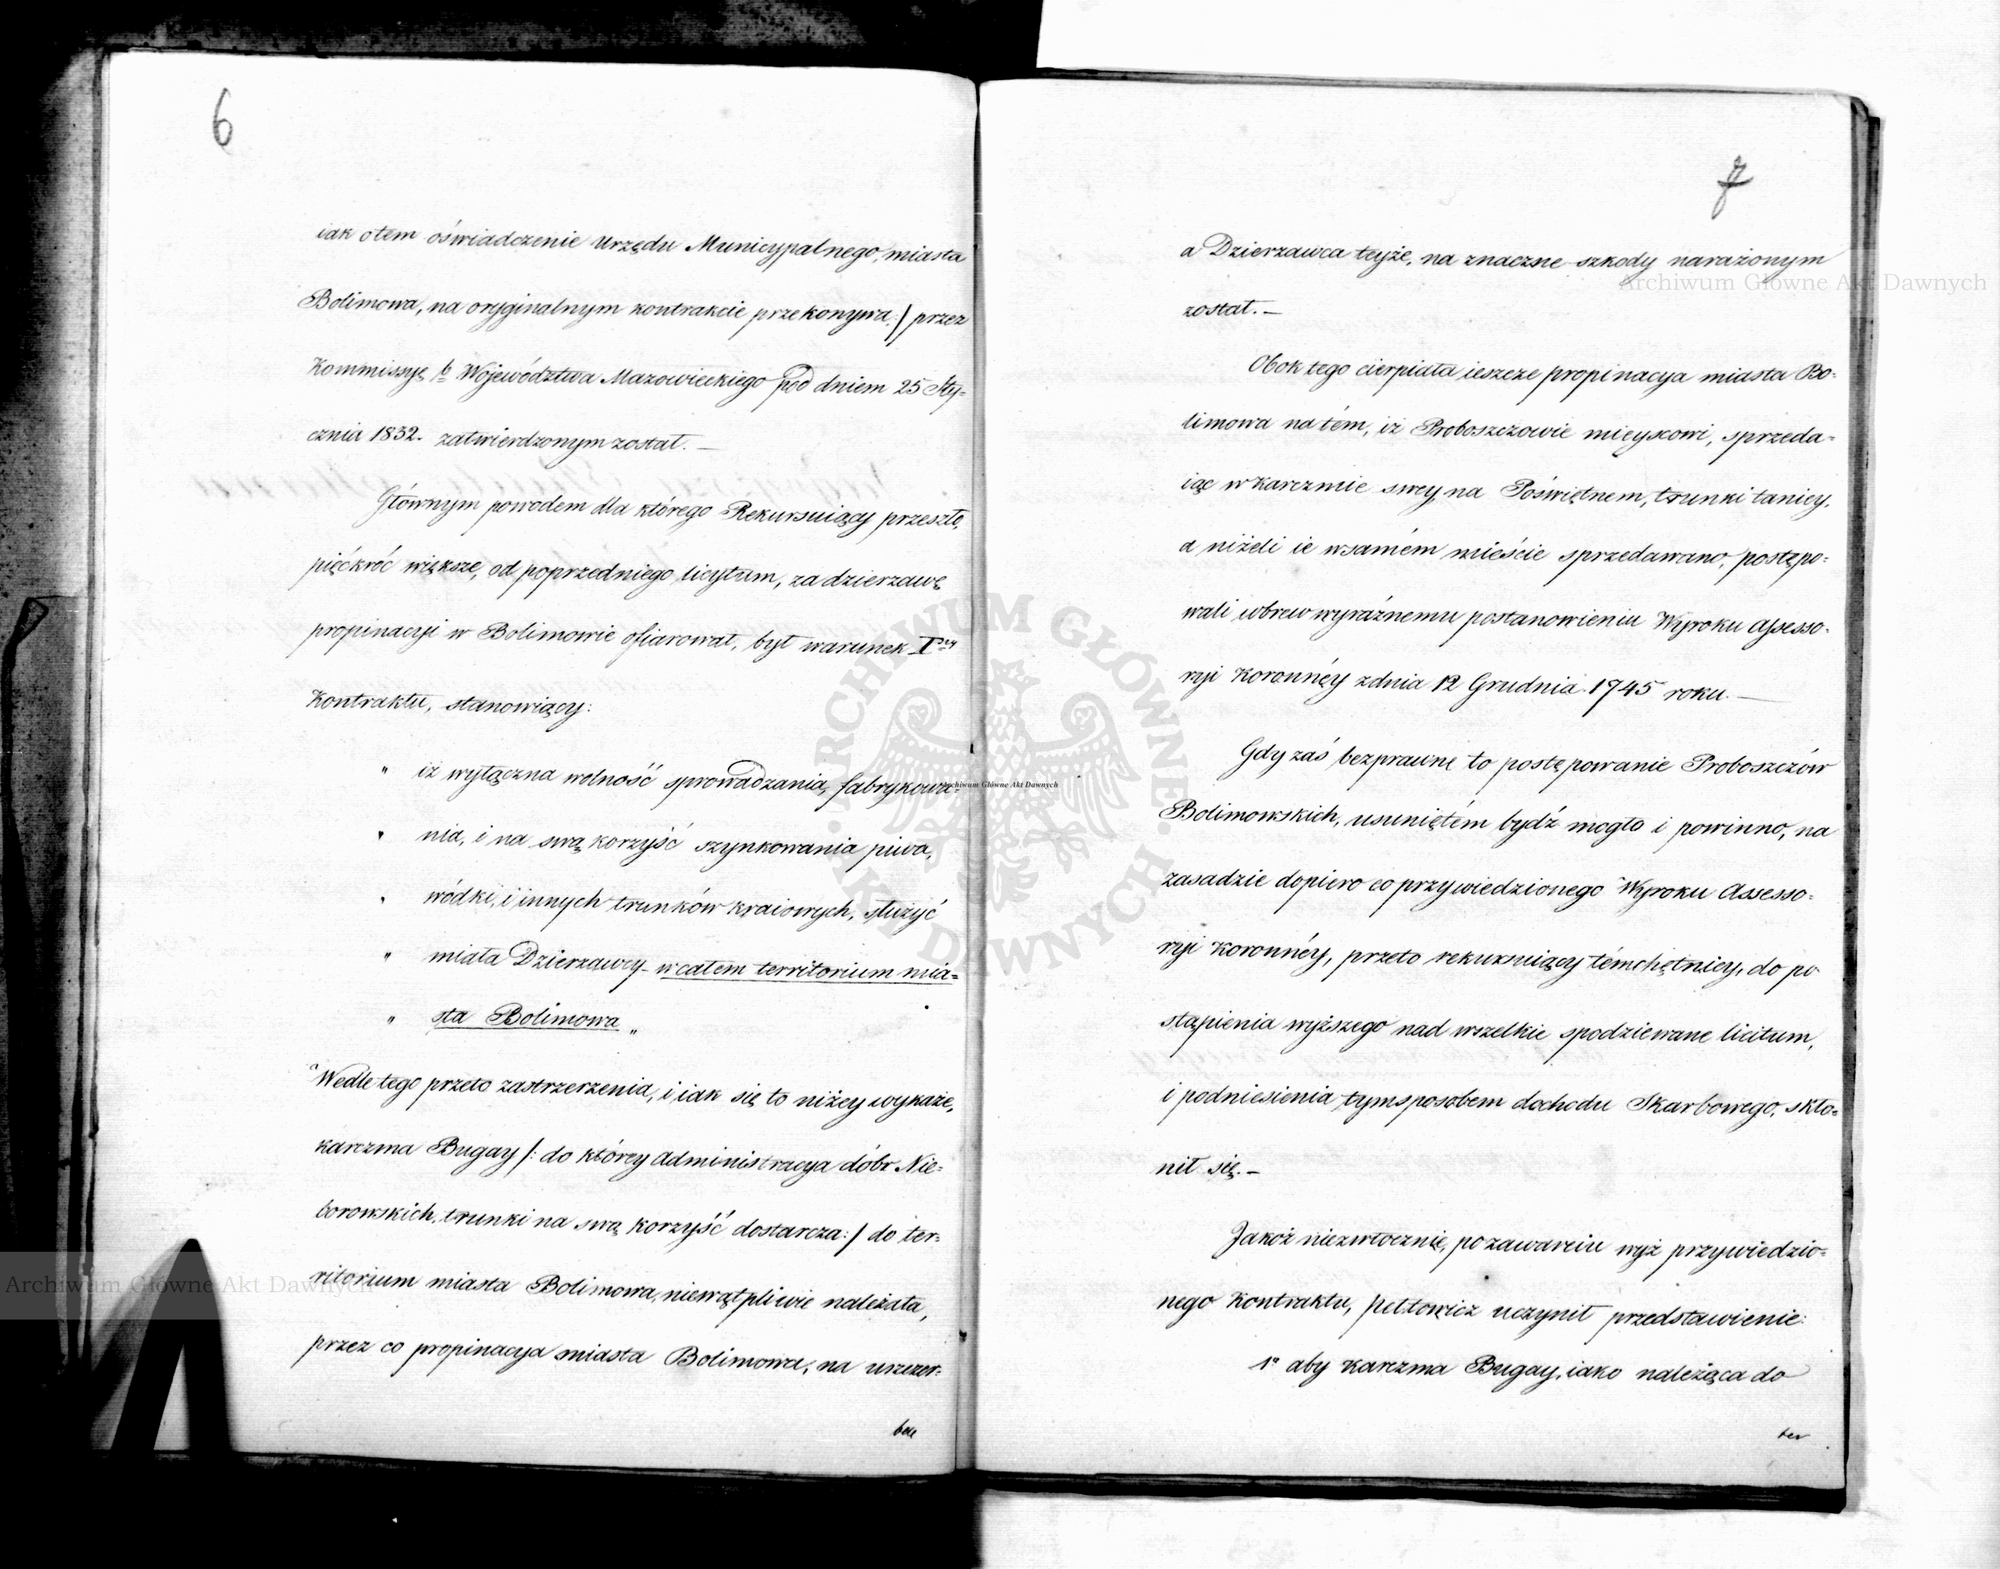 6
iak o tem oświadczenie Urzędu Municypalnego, miasta
Bolimowa, na oryginalnym kontrakcie przekonywa:/ przez
Kommissyę b. Województwa Mazowieckiego pod dniem 25 Sty-
cznia 1832. zatwierdzonym został. —
Głównym powodem dla którego Rekursuiący przeszło,
pięćkroć większe, od poprzedniego licytum, za dzierzawę
propinacyi w Bolimowie ofiarował, był warunek I szy
Kontraktu, stanowiący:
" iż wyłączna wolność sprowadzania, fabrykowa-
" nia, i na swą korzyść szynkowania piwa,
" wódki, i innych trunków kraiowych, służyć
" miała Dzierzawcy w całem territorium mia-
" sta Bolimowa „
Wedle tego przeto zastrzerzenia, i iak się to niżey wykaże,
karczma Bugay /: do którey Administracya dóbr Nie-
borowskich, trunki na swą korzyść dostarcza :/ do ter-
ritorium miasta Bolimowa, niewątpliwie należała,
przez co propinacya miasta Bolimowa, na uszczer-
7
a Dzierzawca teyże, na znaczne szkody narażonym
został. —
Obok tego cierpiała ieszcze propinacya miasta Bo-
limowa na tém, iż Proboszczowie mieyscowi, sprzeda-
iąc w karczmie swey na Poświętnem, trunki taniey,
a niżeli ie w samém mieście sprzedawano, postępo-
wali wbrew wyraźnemu postanowieniu Wyroku Assesso-
ryi Koronnéy z dnia 12 Grudnia 1745 roku. —
Gdy zaś bezprawne to postępowanie Proboszczów
Bolimowskich, usuniętém bydź mogło i powinno, na
zasadzie dopiero co przywiedzionego Wyroku Assesso-
ryi Koronnéy, przeto rekursuiący témchętniey, do po
stąpienia wyższego nad wszelkie spodziewane licitum,
i podniesienia tymsposobem dochodu Skarbowego, skło-
nił się. —
Jakoż niezwłocznie, po zawarciu wyż przywiedzio-
nego Kontraktu, Pettowicz uczynił przedstawienie:
1° aby karczma Bugay, iako należąca do
ter
Archiwum Główne Akt Dawnych
Archiwum Główne Akt Dawnych
Archiwum Główne Akt Dawnych
ARCHIWUM GŁÓWNE AKT DAWNYCH